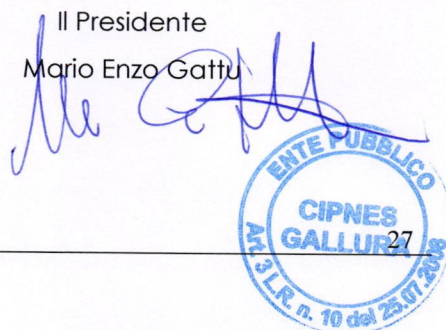 Il Presidente
Mario Enzo Gattu
ENTE PUBBLICO
CIPNES
GALLURA
27
Art. 3 L.R. n. 10 del 25.07.2008